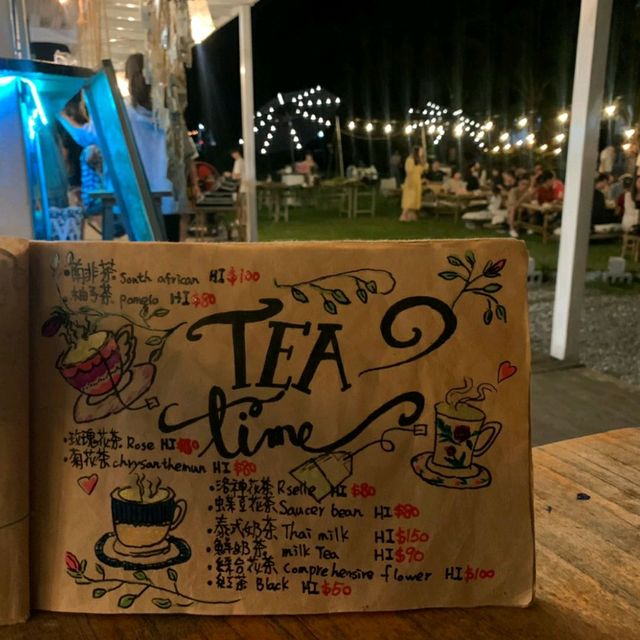 南非茶 South african HI $100
柚子茶 Pomelo HI $80
TEA
time
玫瑰花茶 Rose HI
菊花茶 chrysantheman HI $80
洛神花茶 Rselle HI $80
蝶豆花茶 Saucer bean HI $80
泰式奶茶 Thai milk HI $150
鮮奶茶 milk Tea HI $90
綜合花茶 Comprehensive flower HI $100
紅茶 Black HI $50